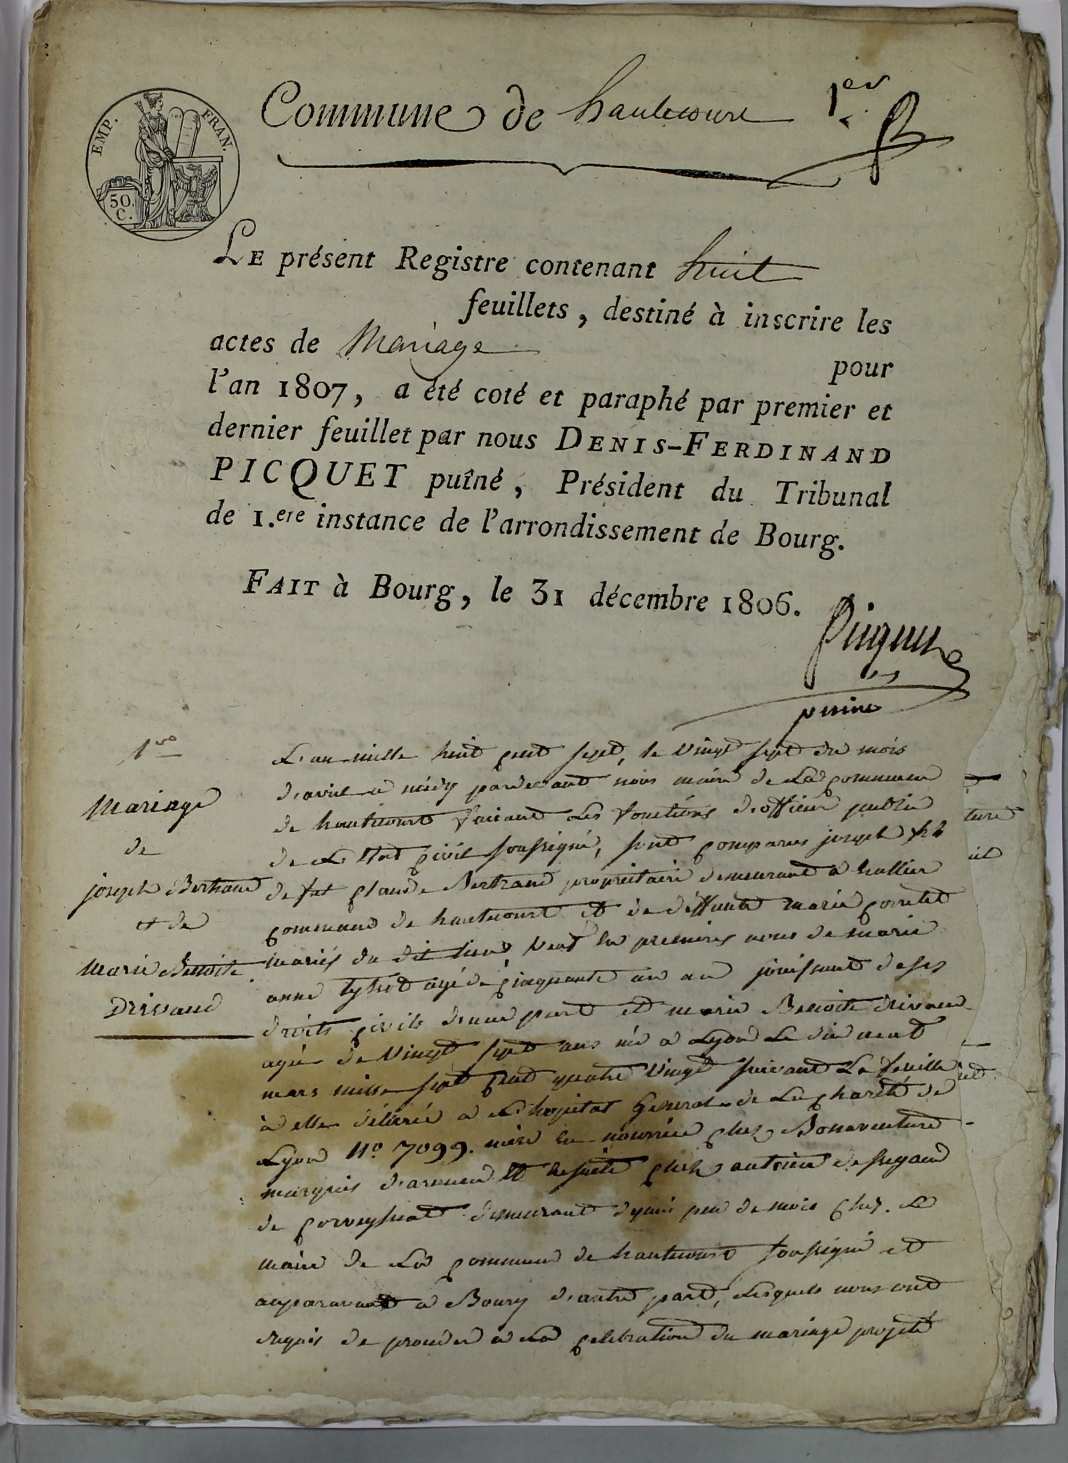 EMP. FRAN.
50 C.
Commune de hautecourt 1er
LE présent Registre contenant huit
feuillets, destiné à inscrire les
actes de Mariage pour
l'an 1807, a été coté et paraphé par premier et
dernier feuillet par nous DENIS-FERDINAND
PICQUET puîné, Président du Tribunal
de 1.ere instance de l'arrondissement de Bourg.
FAIT à Bourg, le 31 décembre 1806.
Picquet
puine
1re
Mariage
de
joseph Bertrand
et de
Marie Benoite
L'an mille huit cent sept, le vingt sept du mois
d'avril a midy pardevant nous maire de La commune
de hautecourt faisant Les fonctions d'officier public
de L'Etat civil soussigné, sont comparus joseph fils
de fut Claude Bertrand propriétaire demeurant a
commune de hautecourt et de deffunte marie
mariés du dit lieu veuf en premieres noces de marie
anne agé de cinquante un an jouissant de ses
droits civils d'une part et marie Benoite
agée de vingt sept ans né a Lyon Le dix neuf
mars mille sept cent quatre vingt suivant La feuille
à elle délivrée a L'hopital General de La charité de
Lyon n° 7099. mise en nourrice chez Bonaventure
marquis et ensuite chez antoine
de corveyssiat demeurant depuis peu de mois chez Le
maire de La commune de hautecourt soussigné et
auparavant a Bourg d'autre part, Lesquels nous ont
requis de proceder a La celebration du mariage projeté